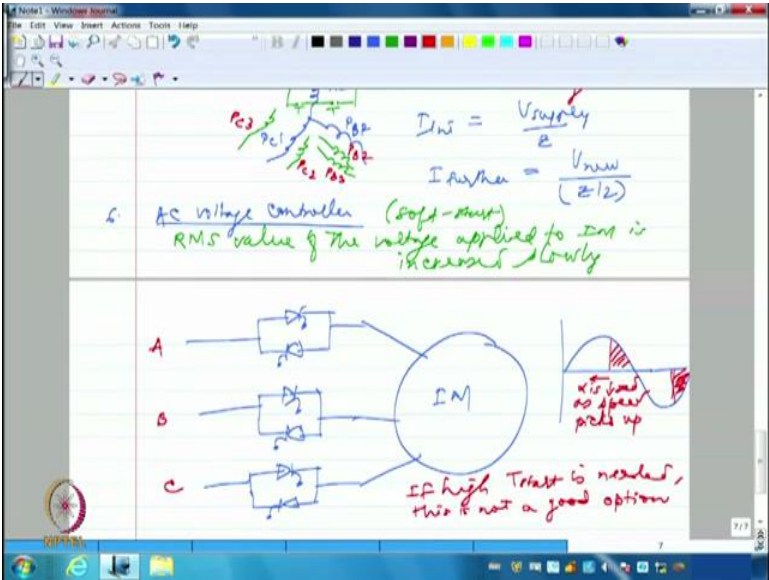 Note1 - Windows Journal
File Edit View Insert Actions Tools Help
Pc3
Pc1
PB2
Pc2 PB3
I ini = Vsupply / Z
I further = Vnew / (Z/2)
6. AC voltage controller (soft-start)
RMS value of the voltage applied to IM is
increased slowly
A
B
C
IM
α is
as speed
picks up
If high Tstart is needed,
this is not a good option
NPTEL
7/7
7